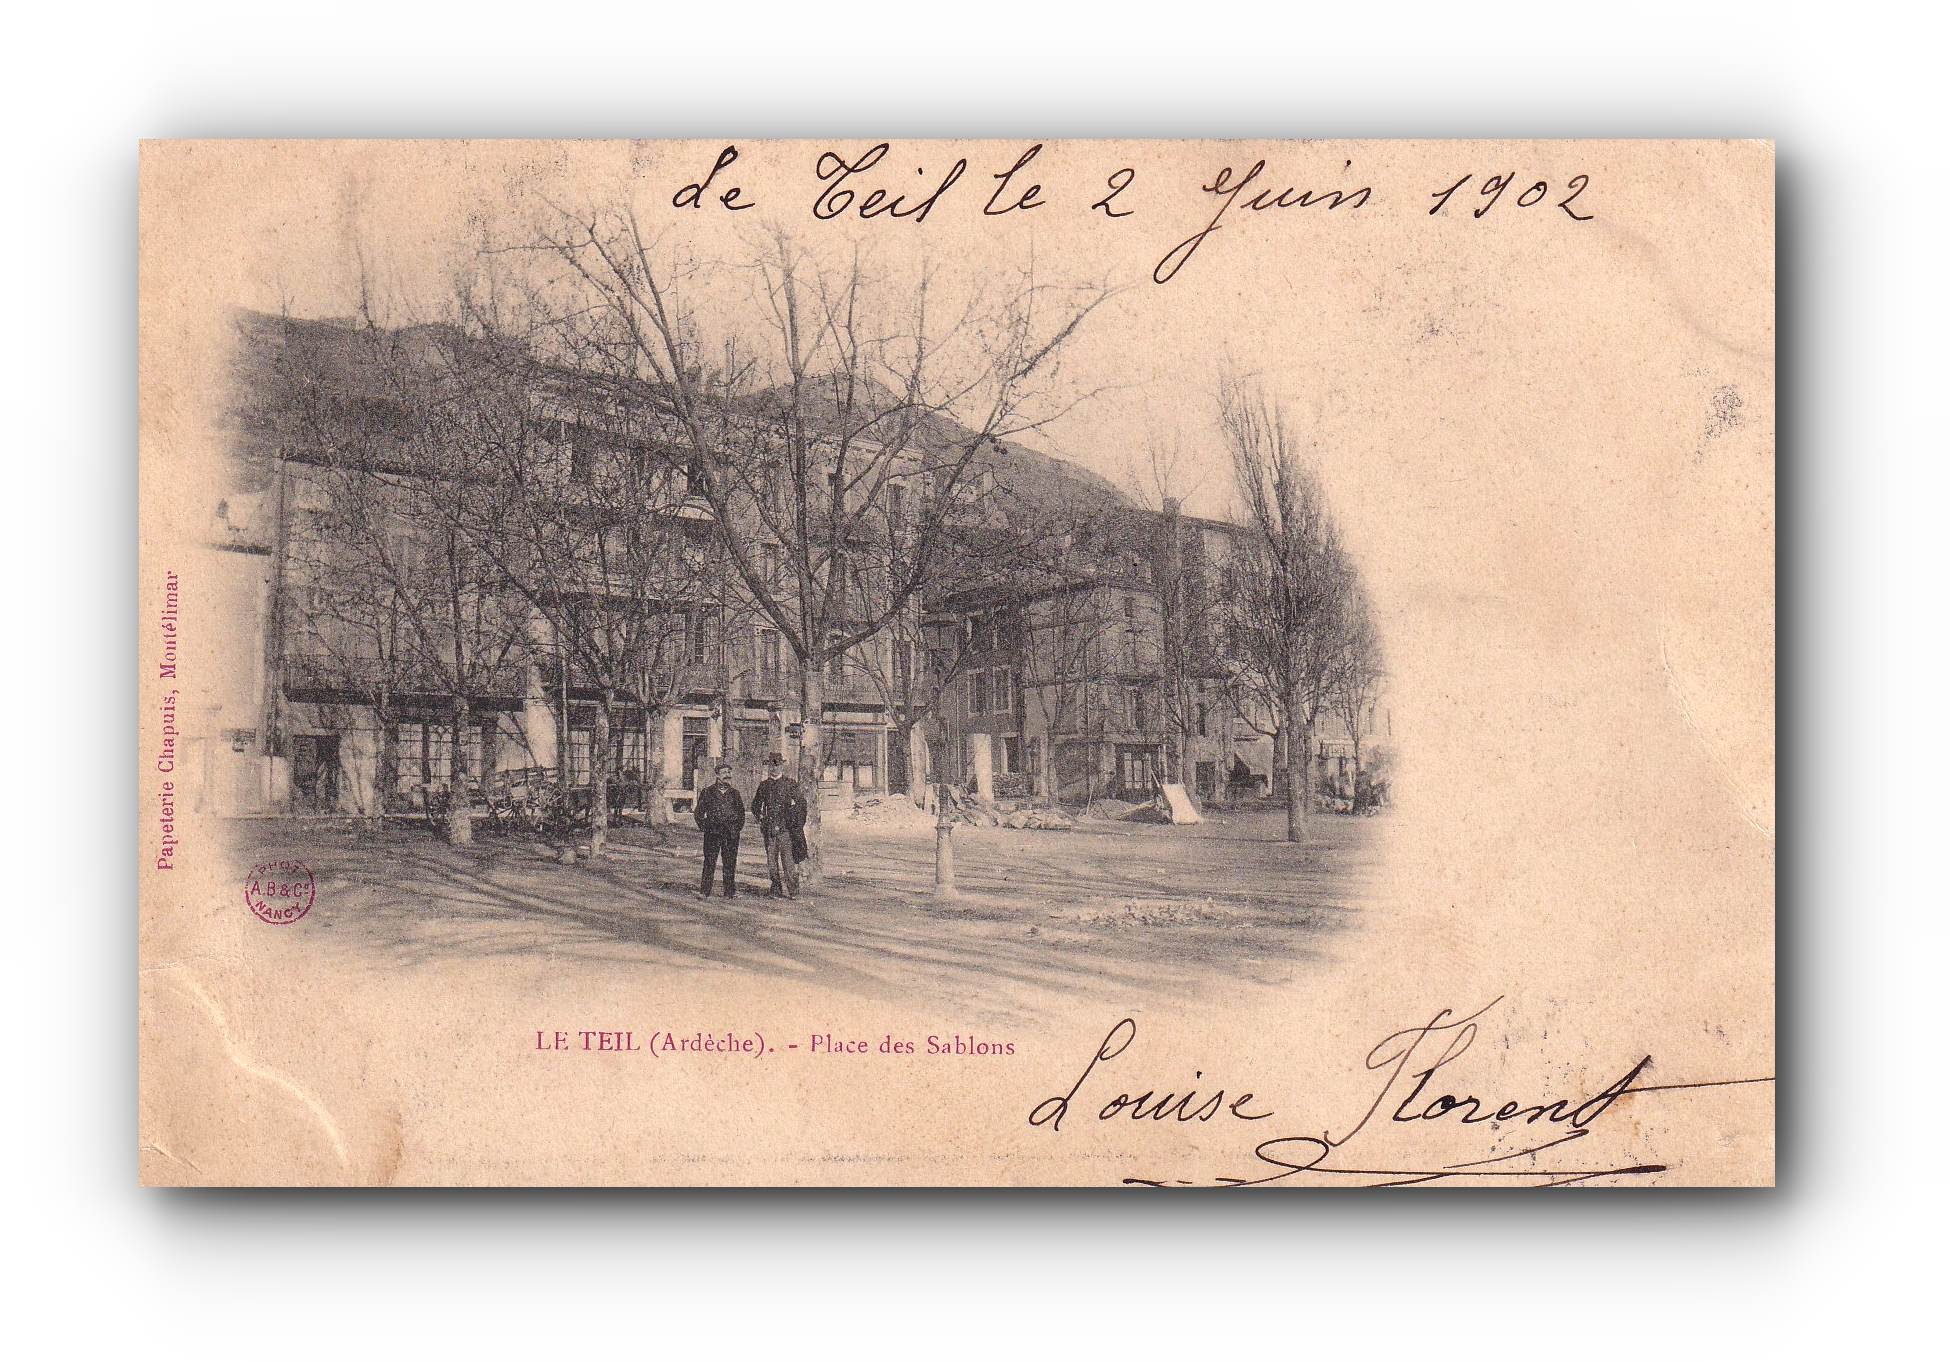 Le Teil le 2 Juin 1902
Papeterie Chapuis, Montélimar
PHOT
A.B & Cie
NANCY
LE TEIL (Ardèche). - Place des Sablons
Louise Florent